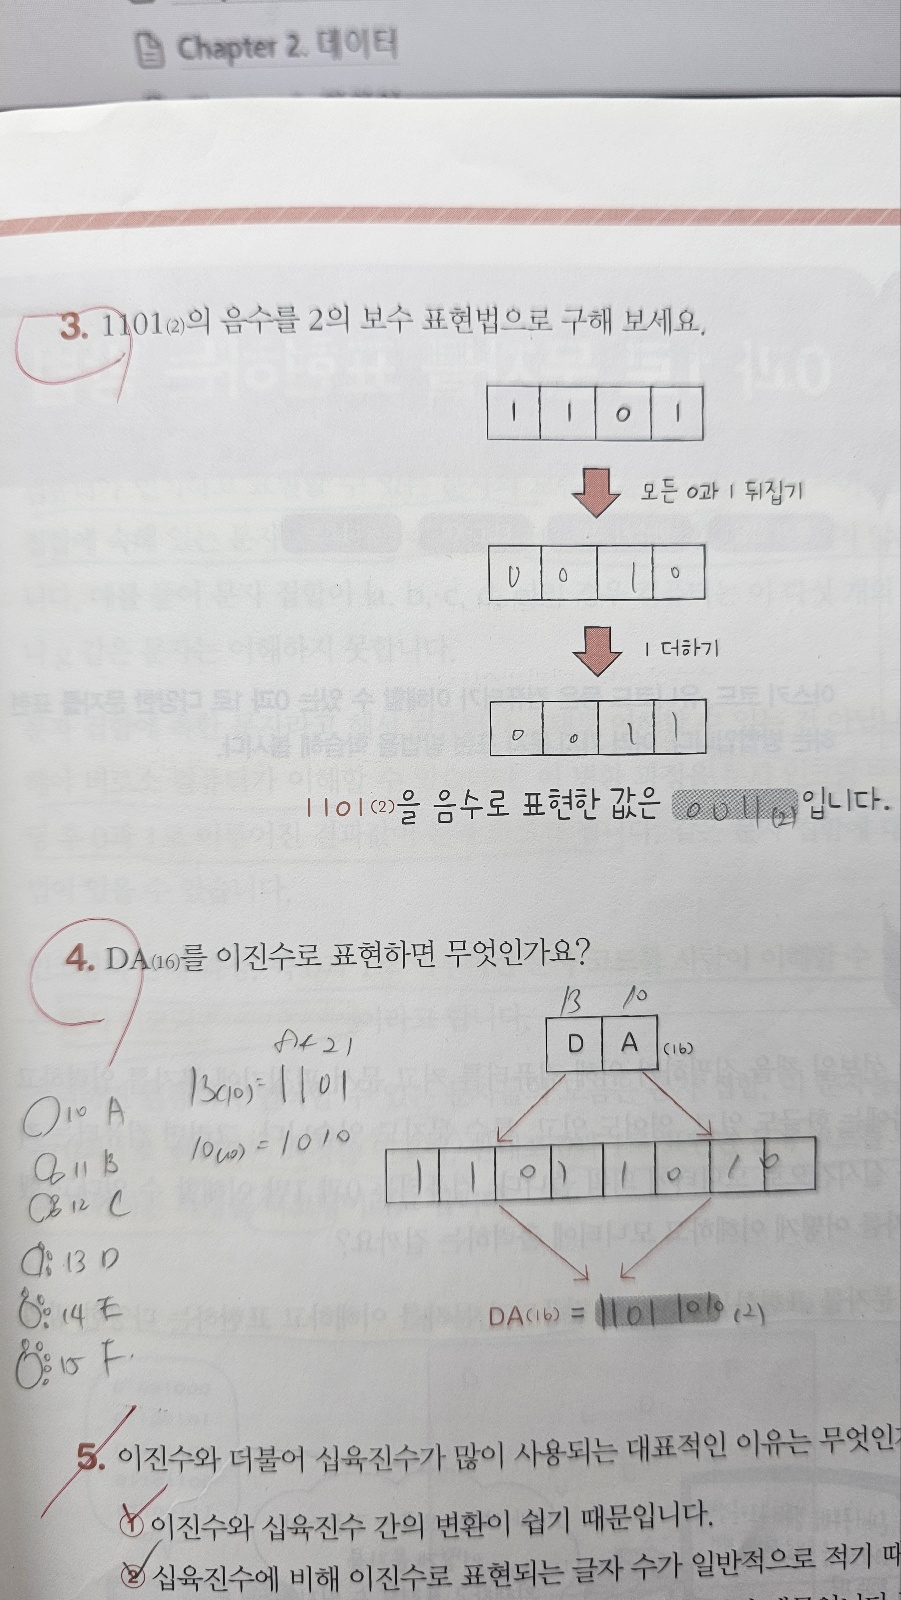 Chapter 2. 데이터
3. 1101(2)의 음수를 2의 보수 표현법으로 구해 보세요.
1 1 0 1
모든 0과 1 뒤집기
0 0 1 0
1 더하기
0 0 1 1
1101(2)을 음수로 표현한 값은 0011(2)입니다.
4. DA(16)를 이진수로 표현하면 무엇인가요?
13 10
D A (16)
13(10)=1101
10(10)=1010
10 A
11 B
12 C
13 D
14 E
15 F
1 1 0 1 1 0 1 0
DA(16) = 1101 1010 (2)
5. 이진수와 더불어 십육진수가 많이 사용되는 대표적인 이유는 무엇인
① 이진수와 십육진수 간의 변환이 쉽기 때문입니다.
② 십육진수에 비해 이진수로 표현되는 글자 수가 일반적으로 적기 때